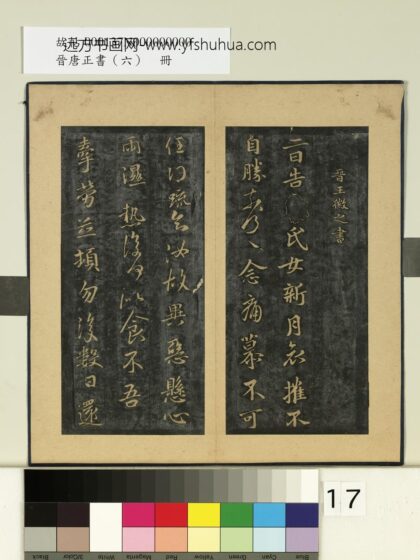 远方书画网-www.yfshuhua.com
晉唐正書（六）　冊
晉王徽之書
二日告氏女新月哀摧不
自勝奈何〻念痛慕不可
任得疏知汝故異惡懸心
雨濕熱復何似食不吾
牽勞並頓勿復數日還
17
Black 3/Color White Magenta Red Yellow Green Cyan Blue